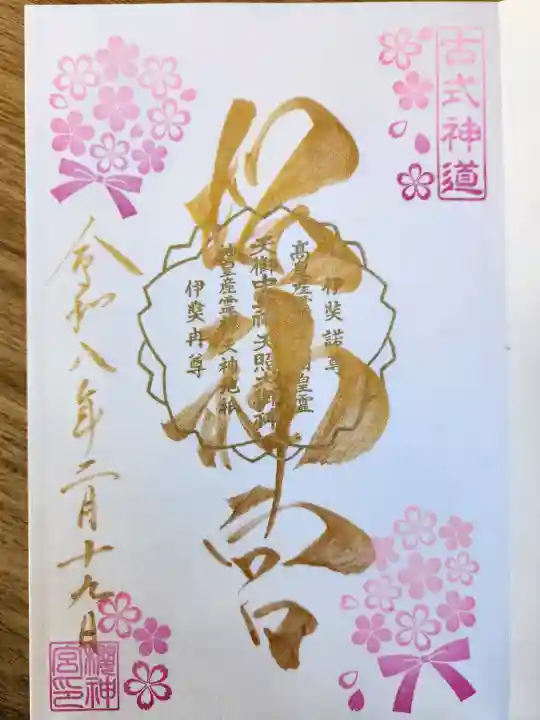 古式神道
櫻神宮
伊奘諾尊
高皇産霊 皇霊
天御中主神 天照大御神
神皇産霊神 天神地祇
伊奘冉尊
令和八年二月十九日
櫻神
宮印